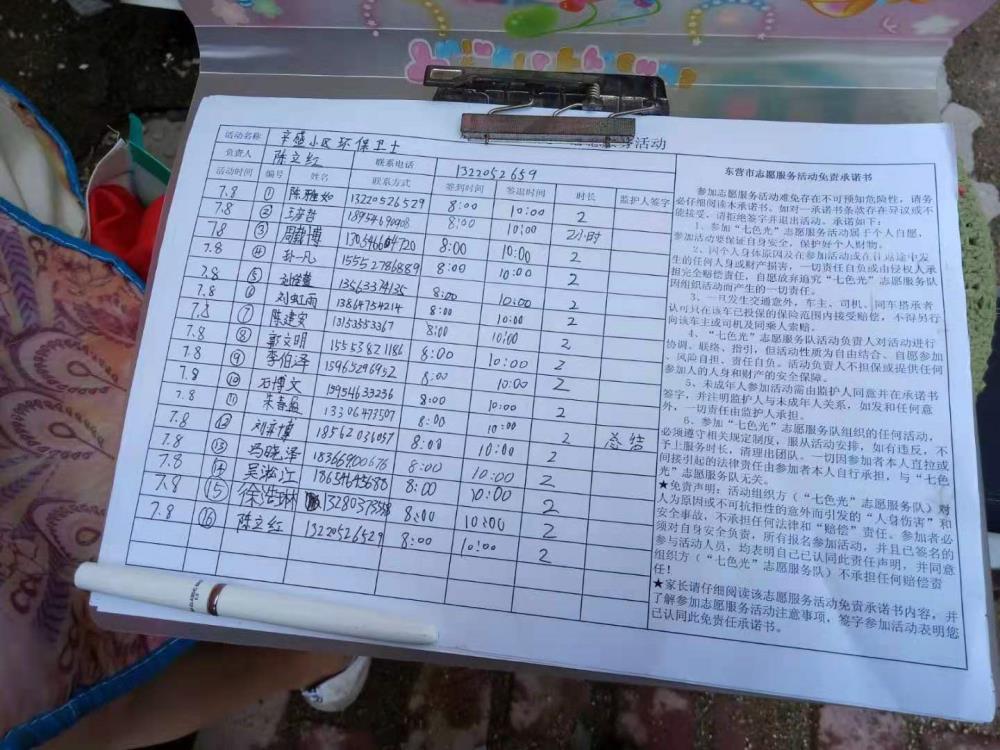 服务活动
活动名称 辛盛小区环保卫士
负责人 陈立红 联系电话 1322052659
活动时间 编号 姓名 联系方式 签到时间 签退时间 时长 监护人签字
7.8 ① 陈雅如 13220526529 8:00 10:00 2
7.8 ② 18954690908 8:00 10:00 2小时
7.8 ③ 8:00 10:00 2
7.8 ④ 孙一凡 15552786889 8:00 10:00 2
7.8 ⑤ 13563374135 8:00 10:00 2
7.8 ⑥ 刘虹雨 13864754214 8:00 10:00 2
7.8 ⑦ 陈建安 13153553367 8:00 10:00 2
7.8 ⑧ 郭文明 15553821186 8:00 10:00 2
7.8 ⑨ 李伯泽 15965296952 8:00 10:00 2
7.8 ⑩ 石博文 15954633236 8:00 10:00 2
7.8 ⑪ 13306473507 8:00 10:00
7.8 ⑫ 刘奕博 18562036057 8:00 10:00 2
7.8 ⑬ 马晓泽 18366900676 8:00 10:00 2
7.8 ⑭ 吴淞江 18654645688 8:00 10:00 2
7.8 ⑮ 徐浩琳 8:00 10:00 2
7.8 ⑯ 陈立红 13220526529 8:00 10:00 2
东营市志愿服务活动免责承诺书
参加志愿服务活动难免存在不可预知危险性，请务
必仔细阅读本承诺书。如对一承诺书条款存在异议或不
能接受，请拒绝签字并退出活动。承诺如下：
1、参加“七色光”志愿服务活动属于个人自愿，
参加活动要保证自身安全，保护好个人财物。
2、因个人身体原因及在参加活动或在往返途中发
生的任何人身或财产损害，一切责任自负或由侵权人承
担完全赔偿责任，自愿放弃追究“七色光”志愿服务队
因组织活动而产生的一切责任。
3、一旦发生交通意外，车主、司机、同车搭承者
认可只在该车已投保的保险范围内接受赔偿，不得另行
向该车主或司机及同乘人索赔。
4、“七色光”志愿服务队活动负责人对活动进行
协调、联络、指引，但活动性质为自由结合、自愿参加
、风险自担、责任自负。活动负责人不担保或提供任何
参加人的人身和财产的安全保障。
5、未成年人参加活动需由监护人同意并在承诺书
签字，并注明监护人与未成年人关系，如发和任何意
外，一切责任由监护人承担。
6、参加“七色光”志愿服务队组织的任何活动，
必须遵守相关规定制度，服从活动安排，如有违反，不
予上报服务时长，清理出团队。一切因参加者本人直拉或
间接引起的法律责任由参加者本人自行承担，与“七色
光”志愿服务队无关。
★免责声明：活动组织方（“七色光”志愿服务队）对
人为原因或不可抗担性的意外而引发的“人身伤害”和
安全事故，不承担任何法律和“赔偿”责任。参加者必
须对自身安全负责，所有报名参加活动，并且已签名的
参与活动人员，均表明自己已认同此责任声明，并同意
组织方（“七色光”志愿服务队）不承担任何赔偿责
任！
★家长请仔细阅读该志愿服务活动免责承诺书内容，并
了解参加志愿服务活动注意事项，签字参加活动表明您
已认同此免责任承诺书。